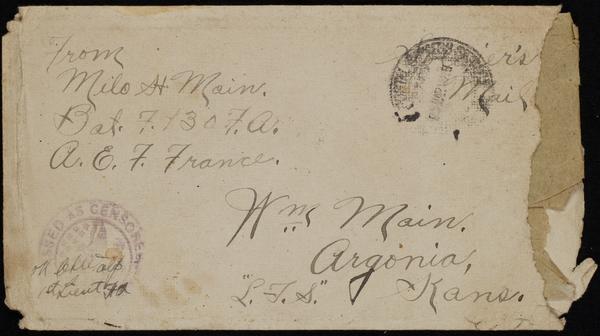 From
Milo H. Main.
Bat. F. 130 F.A.
A. E. F. France.
Soldier's
Mail
Wm Main.
Argonia,
"L. F. S." Kans.
AS CENSORED
OK
1st Lieut FA